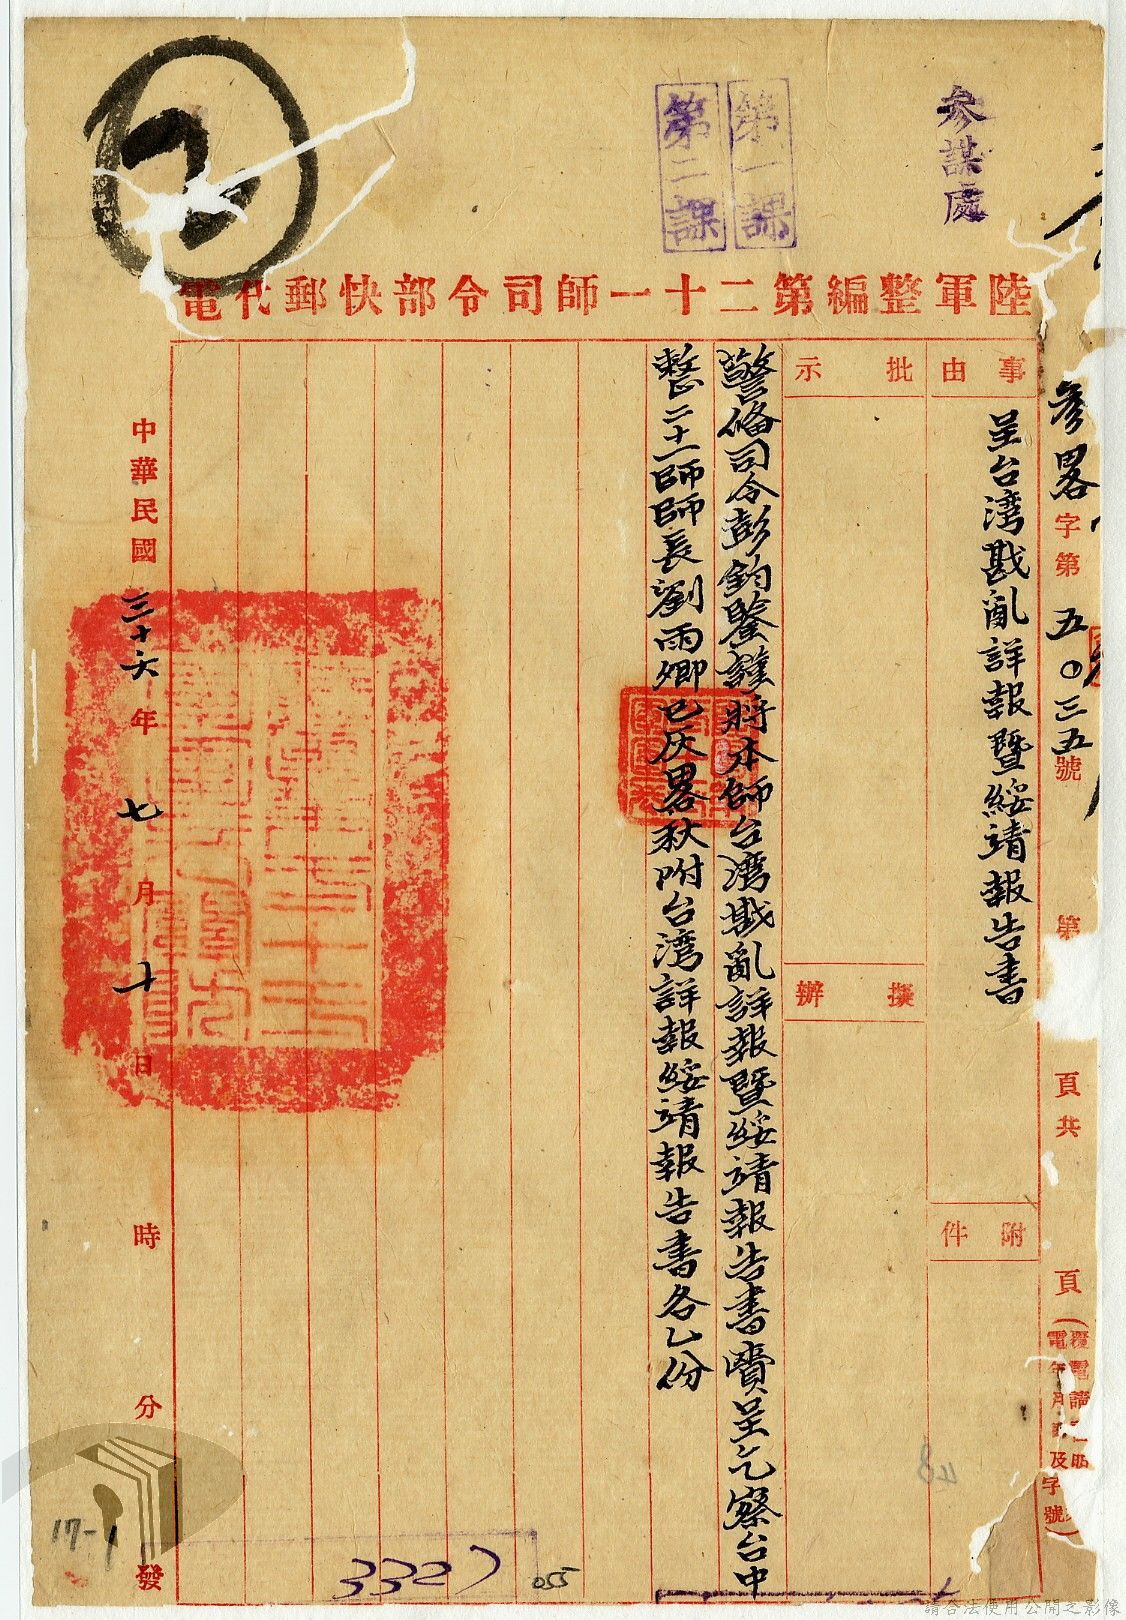 參謀處
第一課
第二課
陸軍整編第二十一師司令部快郵代電
參畧字第五〇三五號 第 頁共 頁
事由
呈台湾戡亂詳報暨綏靖報告書
附件
批示
擬辦
警俻司令彭鈞鑒謹將本師台湾戡亂詳報暨綏靖報告書賫呈乞察台中
整二十一師師長劉雨卿已灰畧秋附台湾詳報綏靖報告書各乙份
中華民國三十六年七月十日 時 分發
3327
055
17-1
請合法使用公開之影像